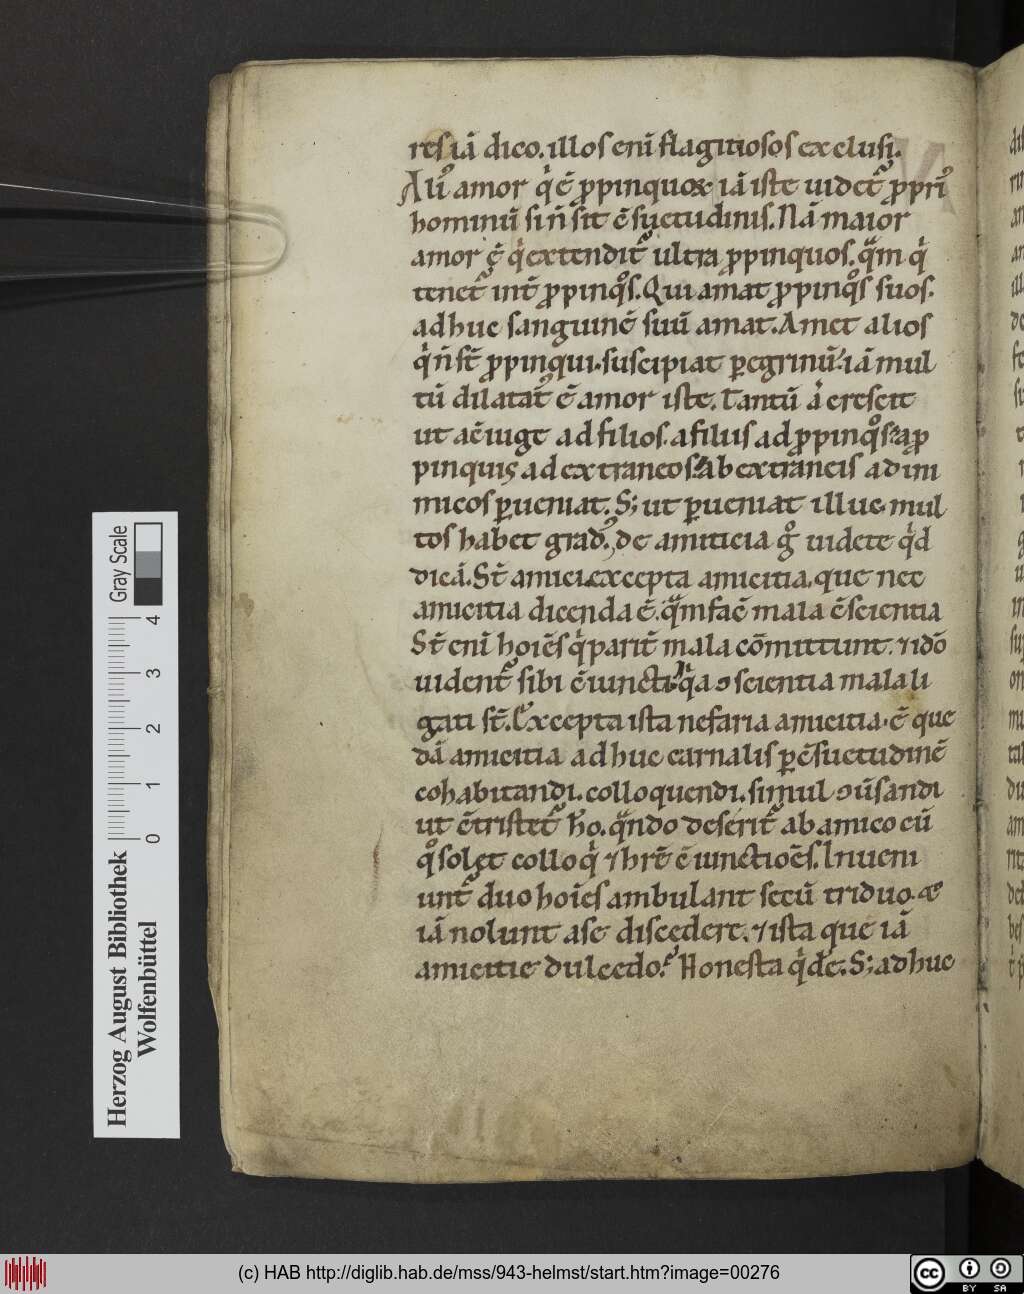 res iā dico. illos enī flagitiosos exclusi.
Aliꝰ amor q̇ ē ꝓpinquoꝝ iā iste uidet᷑ ꝓpriꝰ
hominū si n̄ sit ꝯ̄suetudinis. Nā maior
amor ē q̇ extendit᷑ ultra ꝓpinquos. q̄m q̇
tenet᷑ int̄ ꝓpinqͦs. Qui amat ꝓpinqͦs suos.
adhuc sanguinē suū amat. Amet alios
q̇ n̄ st̄ ꝓpinqui. suscipiat ꝑegrinū. iā mul
tū dilatatꝰ ē amor iste. Tantū aͥ crescit
ut a ꝯ̄iuge ad filios. a filiis ad ꝓpinqͦs. a ꝓ
pinquis ad extraneos. Ab extraneis ad ini
micos ꝑueniat. S; ut ꝑueniat illuc. mul
tos habet gradꝰ. de amiticia gͦ uidete qͥd
dicā. St̄ amici. excepta amicitia. que nec
amicitia dicenda ē. q̄m facē mala ꝯ̄scientia
St̄ enī hoīēs q̇ parit̄ mala cōmittunt. ⁊ idō
uident᷑ sibi ꝯ̄iuncti. qͥa ꝯscientia mala li
gati st̄. Excepta ista nefaria amicitia. ē que
dā amicitia adhuc carnalis ꝑ ꝯ̄suetudinē
cohabitandi. colloquendi. simul ꝯūsandi
ut ꝯ̄tristet᷑ hō. q̄ndo deserit᷑ ab amico cū
qͦ solet colloq̇ ⁊ hr̄e ꝯ̄iunctiōēs. Inueni
unt᷑ duo hoīēs ambulant secū triduo. &
iā nolunt a se discedere. ⁊ ista que iā
amicitie dulcedo. Honesta qͥdē. S; adhuc
Herzog August Bibliothek
Wolfenbüttel
Gray Scale
0 1 2 3 4
(c) HAB http://diglib.hab.de/mss/943-helmst/start.htm?image=00276
cc BY SA